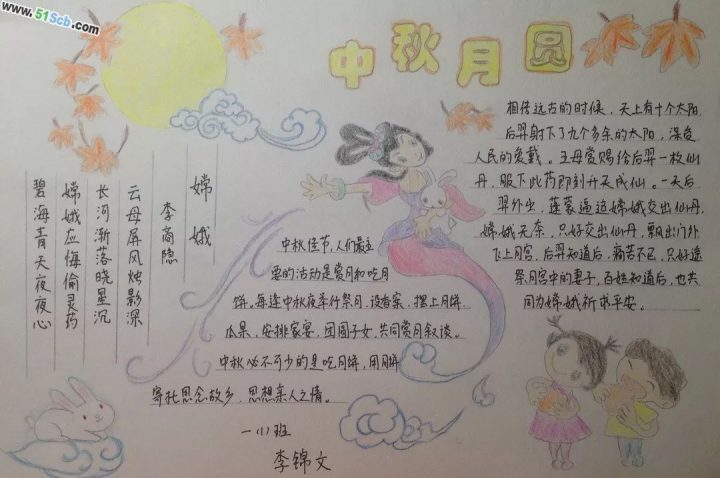 www.51Scb.com
中秋月圆
嫦娥
李商隐
云母屏风烛影深
长河渐落晓星沉
嫦娥应悔偷灵药
碧海青天夜夜心
中秋佳节,人们最主
要的活动是赏月和吃月
饼。每逢中秋夜举行祭月,设香案,摆上月饼
瓜果,安排家宴,团圆子女,共同赏月叙谈。
中秋必不可少的是吃月饼,用月饼
寄托思念故乡,思想亲人之情。
一(1)班
李锦文
相传远古的时候,天上有十个太阳,
后羿射下了九个多余的太阳,深受
人民的爱戴。王母赏赐给后羿一枚仙
丹,服下此药即刻升天成仙。一天后
羿外出,蓬蒙逼迫嫦娥交出仙丹,
嫦娥无奈,只好交出仙丹,飘出门外
飞上月宫,后羿知道后,痛苦不已,只好遥
祭月宫中的妻子,百姓知道后,也共
同为嫦娥祈求平安。